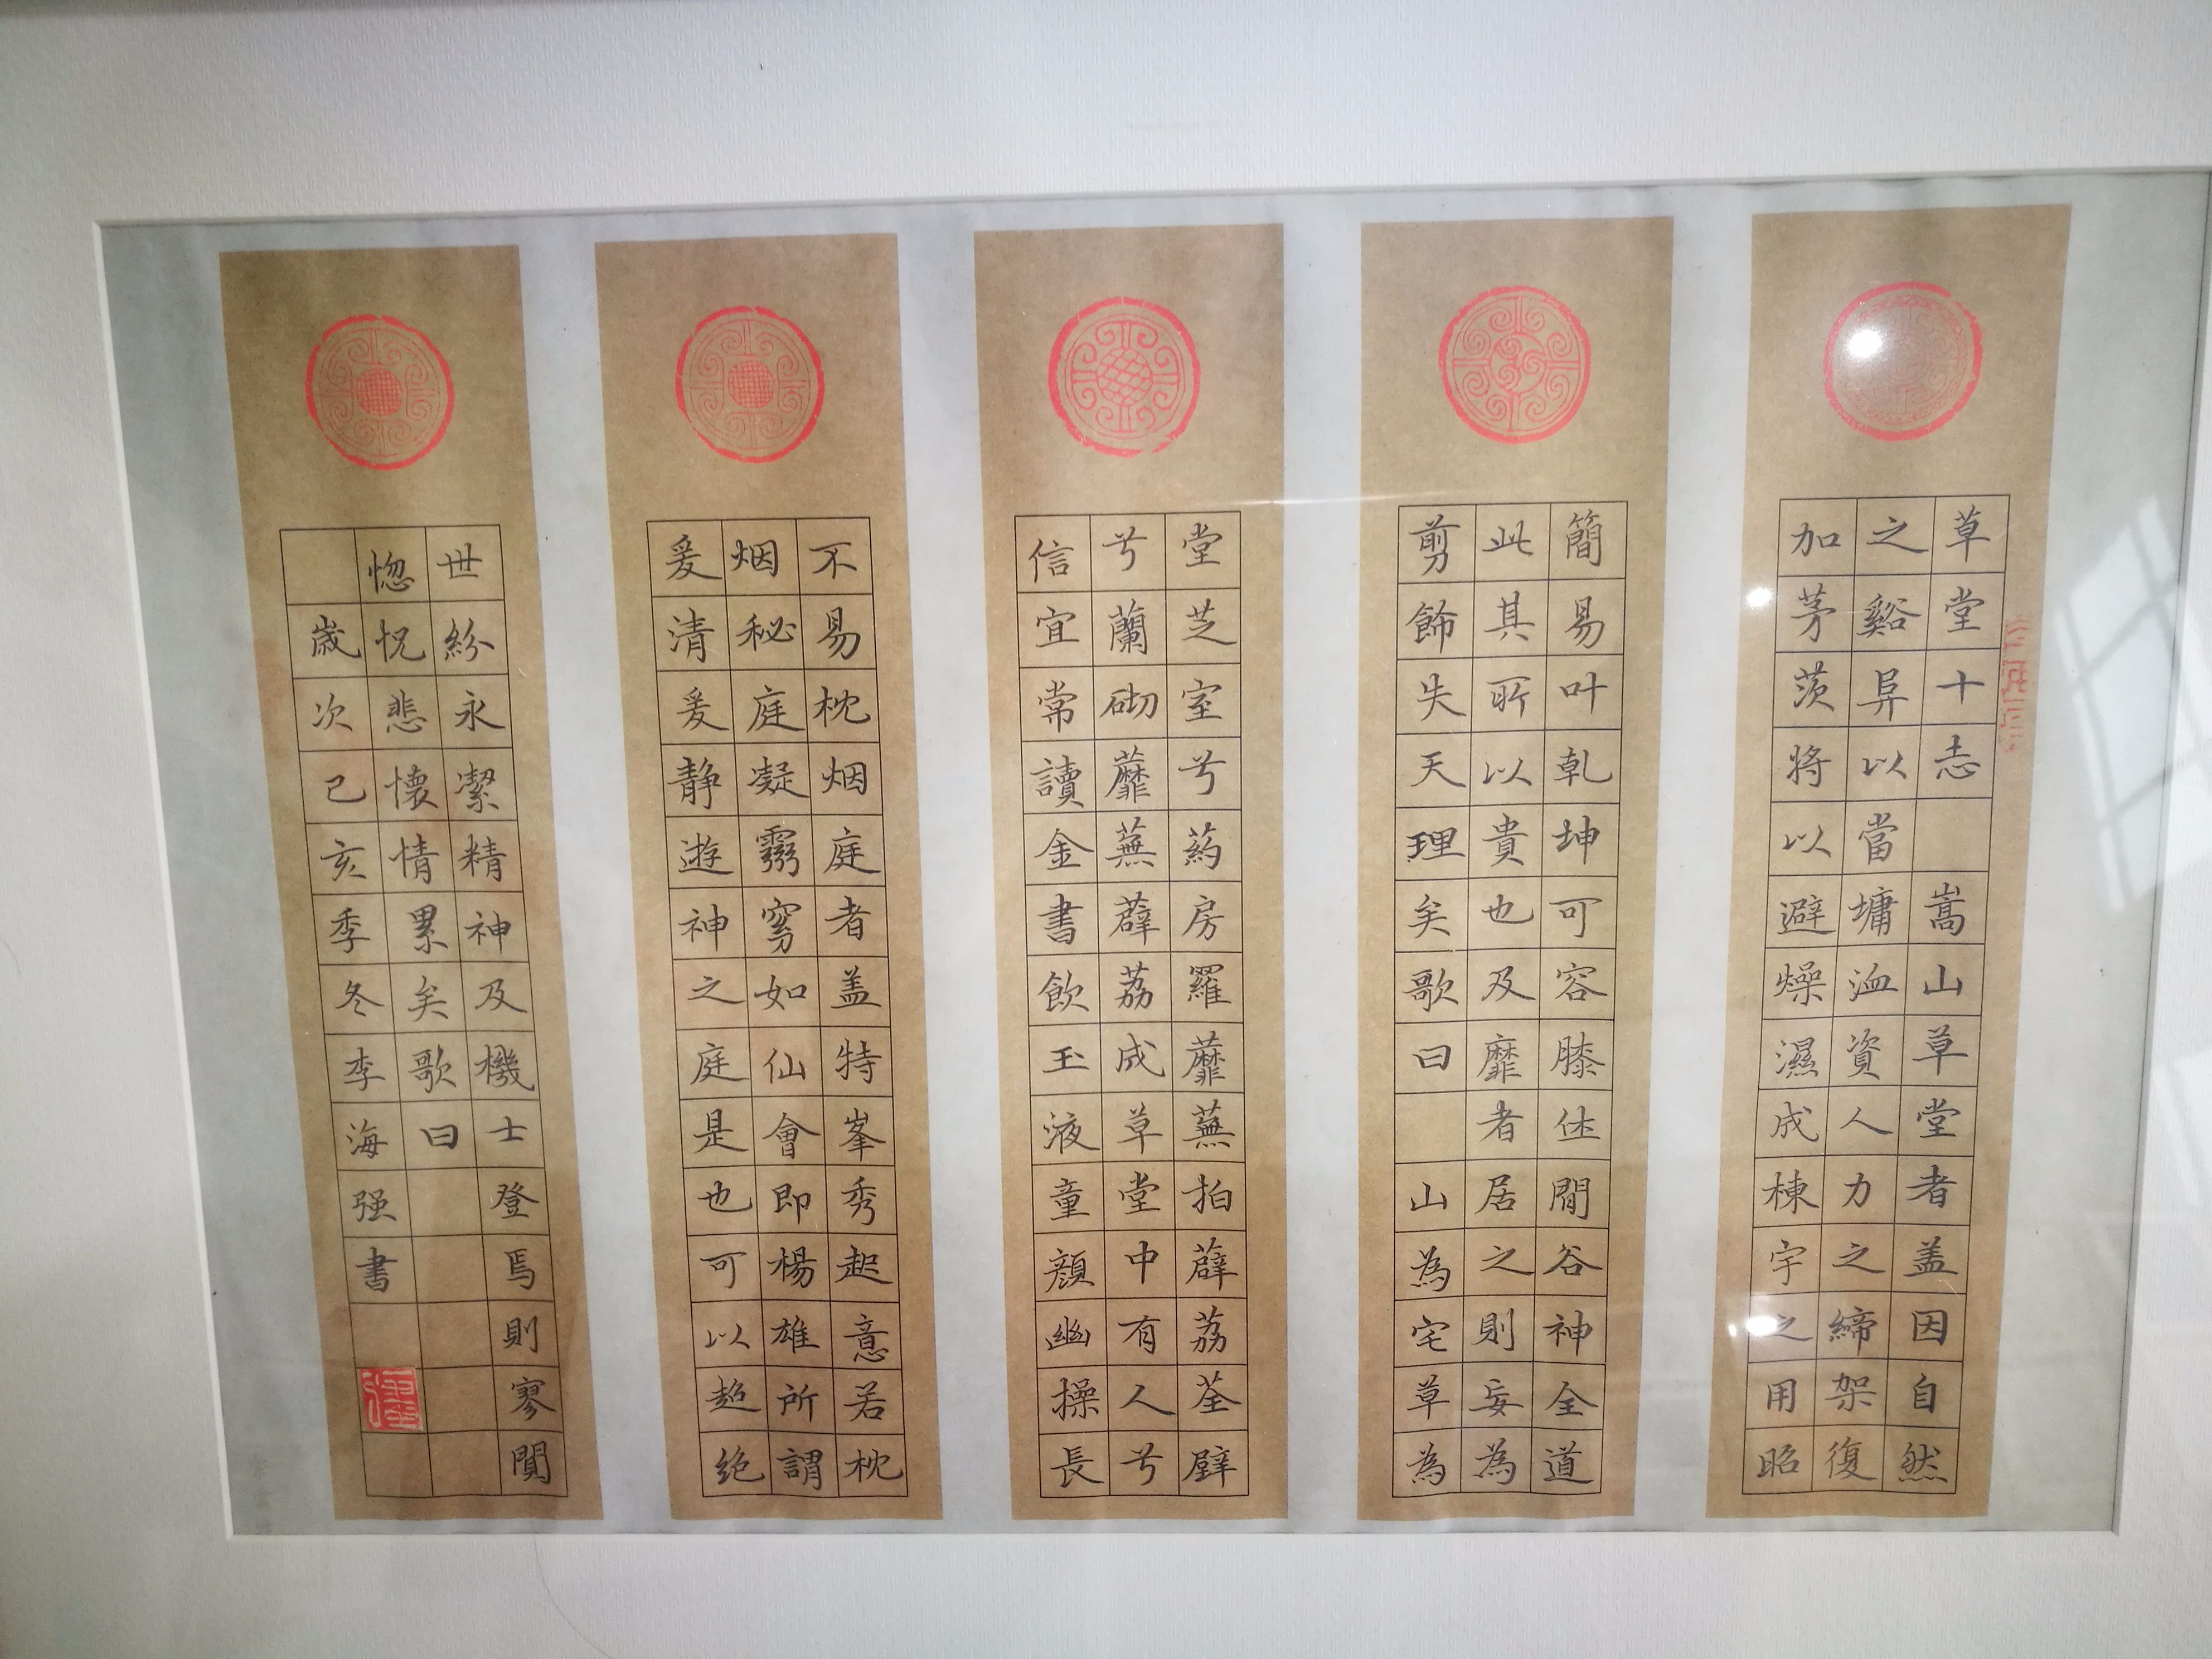 草堂十志 嵩山草堂者盖因自然
之谿阜以當墉洫資人力之締架復
加茅茨將以避燥濕成棟宇之用昭
簡易叶乾坤可容膝休閒谷神全道
此其所以貴也及靡者居之則妄為
剪飾失天理矣歌曰 山為宅草為
堂芝室兮葯房羅蘼蕪拍薜荔荃壁
兮蘭砌蘼蕪薜荔成草堂中有人兮
信宜常讀金書飲玉液童顏幽操長
不易枕烟庭者盖特峯秀起意若枕
烟秘庭凝靈窈如仙會即楊雄所謂
爰清爰静遊神之庭是也可以超绝
世紛永潔精神及機士登焉則寥閴
惚怳悲懷情累矣歌曰
歲次己亥季冬李海强書